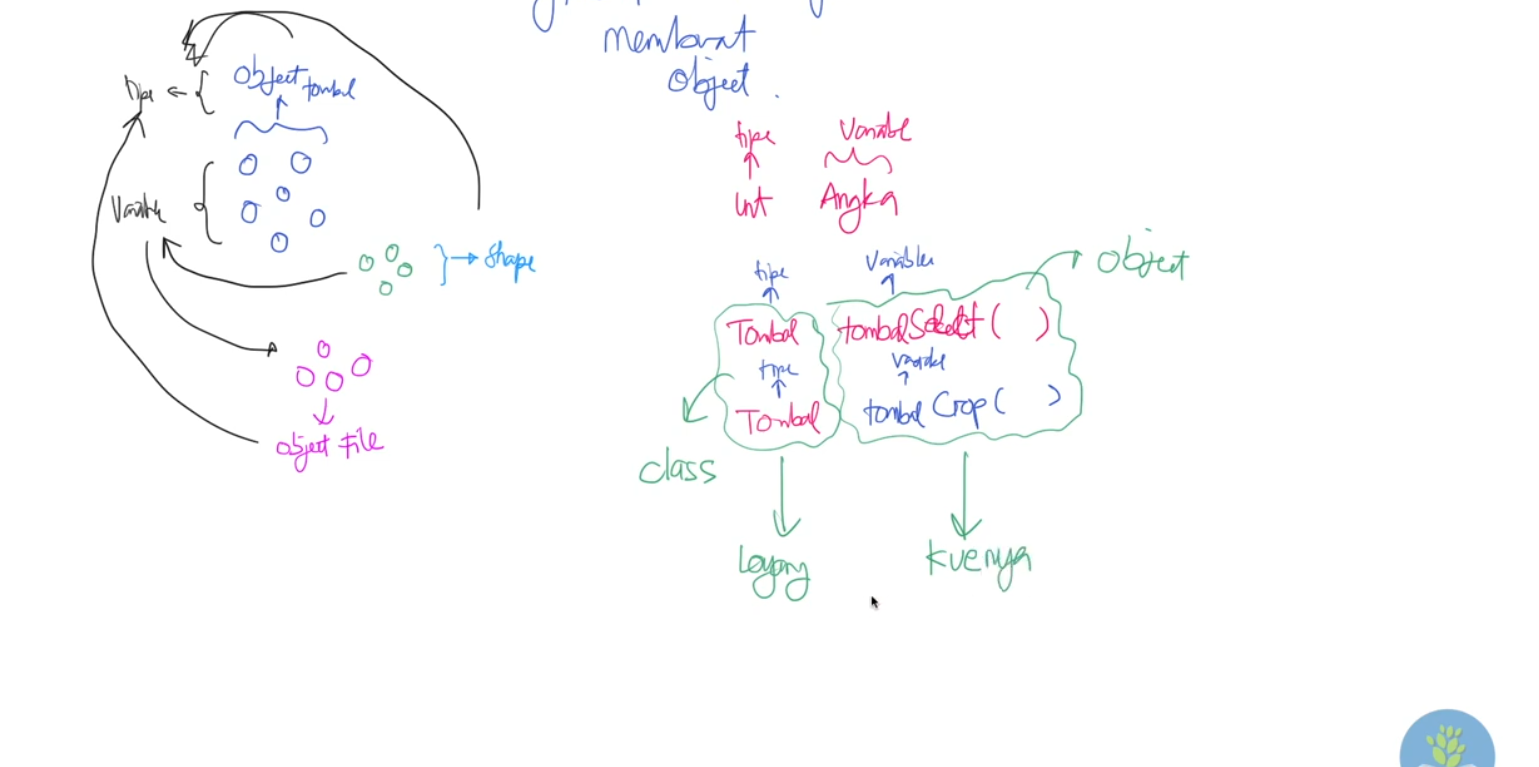 membuat
object.
tipe
Object tombol
Variable
Shape
object File
tipe Variable
int Angka
tipe Variables
object
Tombol tombolSelect( )
tipe Variable
Tombol tombol Crop( )
class
Loyang Kuenya